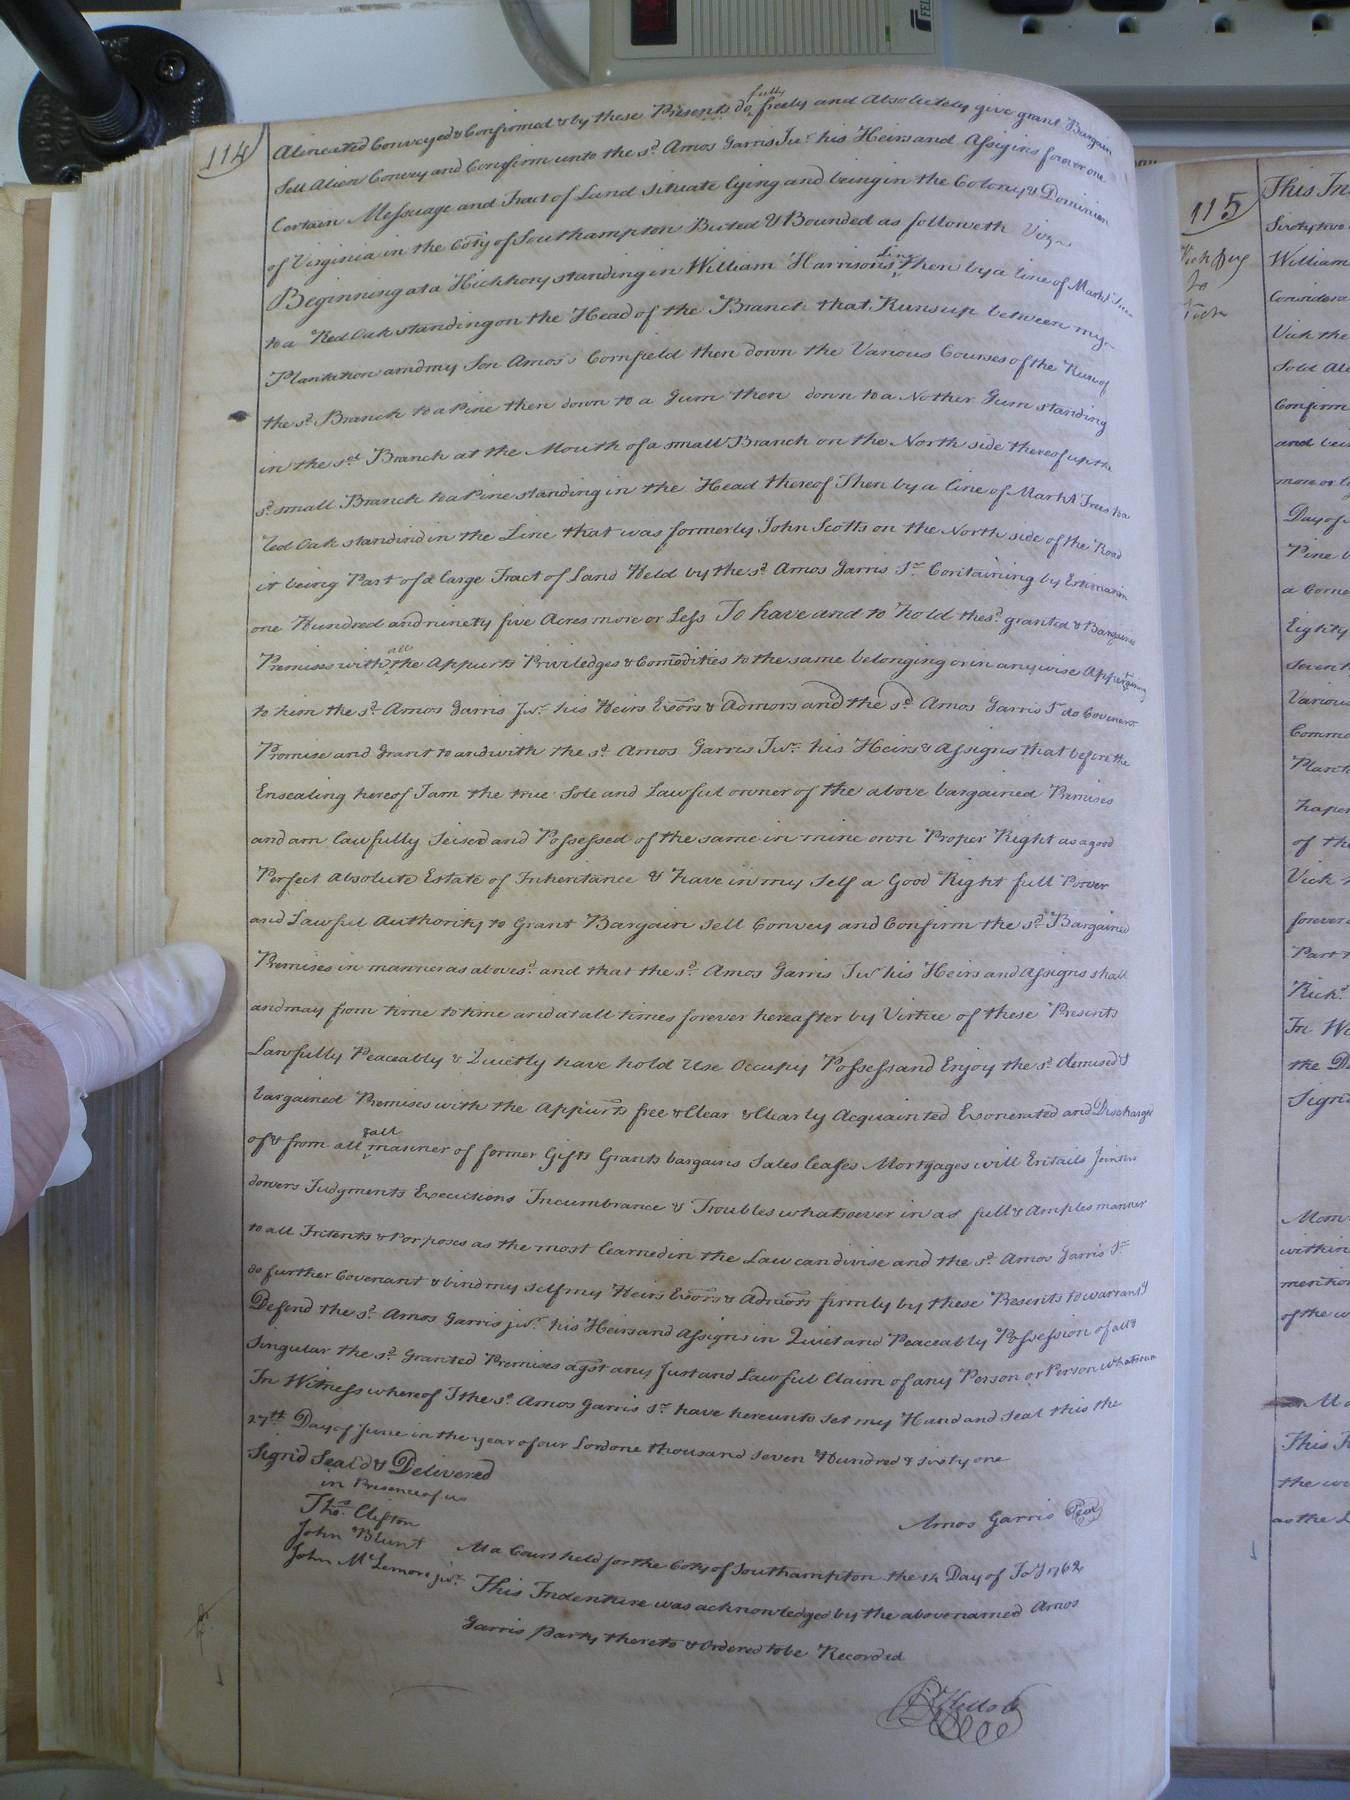 114
Alineated Conveyed & Confirmed & by these Presents do fully freely and Absolutely give grant Bargain
Sell Alien Convey and Confirm unto the sd. Amos Garris Junr. his Heirs and Assigins forever one
Certain Messuage and Tract of Land Situate lying and being in the Colony & Dominion
of Virginia in the Coty of Southampton Buted & Bounded as followeth Viz
Beginning at a Hickhory standing in William Harrisons Line then by a line of Markt Trees
to a Red Oak standing on the Head of the Branch that Runs up between my
Plantation and my Son Amos's Cornfield then down the Various Courses of the Run of
the sd. Branch to a Pine then down to a Gum then down to a Nother Gum standing
in the sd. Branch at the Mouth of a small Branch on the North side thereof up the
sd. small Branch to a Pine standing in the Head thereof Then by a line of Markt Trees to a
Red Oak standind in the Line that was formerly John Scotts on the North side of the Road
it being Part of a large Tract of Land Held by the sd. Amos Garris Sr. Containing by Estimation
one Hundred and ninety five Acres more or Less To have and to hold the sd. granted & Bargaind
Premises with all the Appurts Priviledges & Comodities to the same belonging or in anywise Appertaining
to him the sd. Amos Garris Junr. his Heirs Exors & Admors and the sd. Amos Garris Sr. do Covenant
Promise and Grant to and with the sd. Amos Garris Junr. his Heirs & Assigns that before the
Ensealing hereof I am the true Sole and Lawful owner of the above bargained Premises
and am lawfully Seised and Possessed of the same in mine own Proper Right as a good
Perfect Absolute Estate of Inheritance & have in my Self a Good Right full Power
and Lawful Authority to Grant Bargain Sell Convey and Confirm the sd. Bargained
Premises in manner as aboves.d and that the sd. Amos Garris Junr his Heirs and Assigns shall
and may from time to time and at all times forever hereafter by Virtue of these Presents
Lawfully Peaceably & Quietly have hold Use Occupy Possess and Enjoy the sd. demised &
bargained Premises with the Appurts free & Clear & Clearly Acquainted Exonerated and Discharged
of & from all & all manner of former Gifts Grants bargains Sales leases Mortgages will Entails Jointers
dowers Judgments Executions Incumbrance & Troubles whatsoever in as full & Amples manner
to all Intents & Porposes as the most learned in the Law can divise and the sd. Amos Garris Sr.
do further Covenant & bind my self my Heirs Exors & Admors firmly by these Presents to warrant &
Defend the sd. Amos Garris junr. his Heirs and Assigns in Quiet and Peaceably Possession of all &
Singular the sd. Granted Premises agst any Just and Lawful Claim of any Person or Person whatsoever
In Witness whereof I the sd. Amos Garris Sr. have hereunto set my Hand and Seal this the
27th Day of June in the year of our Lord one thousand seven Hundred & sixty one
Signd Seald & Delivered
in Presence of us
Thos. Clifton
John Blunt
John McLemore junr.
Amos Garris Seal
At a Court held for the Coty of Southampton the 14 Day of 1762
This Indenture was acknowledged by the abovenamed Amos
Garris party thereto & Ordered to be Recorded
115
This In
Sixty two
William
Considera
Vick the
Sold Ali
Confirm
and bei
more or l
Day of
Pine b
a Corne
Eighty
Sevent
Various
Commo
Plant
haper
of th
Vick
forever
Part
Richd.
In Wi
the D
Signd
Mem
within
mention
of the w
This I
the wi
as the